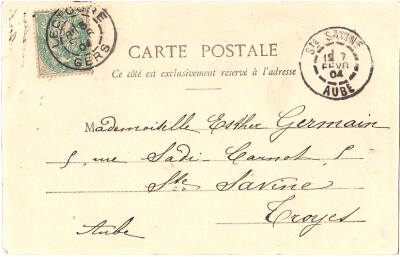 LECTOURE
GERS
04
CARTE POSTALE
Ce côté est exclusivement réservé à l'adresse
STE SAVINE
7
FEVR
04
AUBE
Mademoiselle Esther Germain
5, rue Sadi-Carnot, 5
Ste Savine
Troyes
Aube